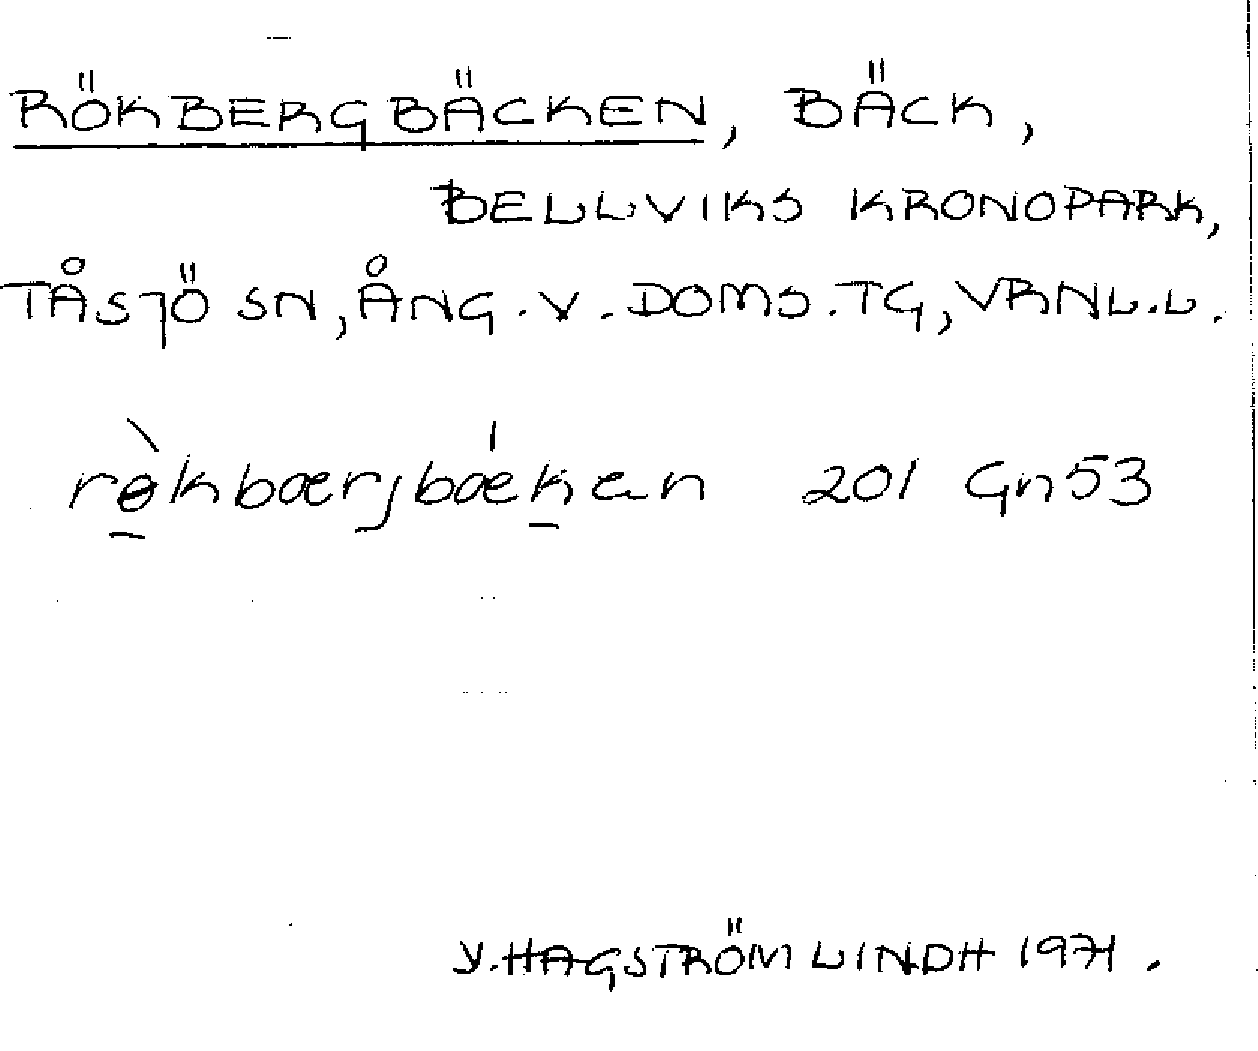 RÖKBERGBÄCKEN, BÄCK,
BELLVIKS KRONOPARK,
TÅSJÖ SN, ÅNG. V. DOMS. TG, VRNL.L.
rø̀kbærjbǽken 201 Gn53
Y. HAGSTRÖM LINDH 1971.